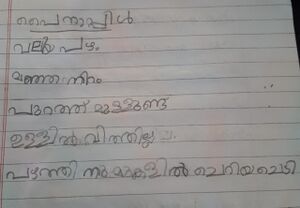 പൈനാപ്പിൾ
വലിയ പഴം
മഞ്ഞ നിറം
പുറത്ത് മുള്ളുണ്ട്
ഉള്ളിൽ വിത്തില്ല
പഴത്തി നു മുകളിൽ ചെറിയ ചെടി